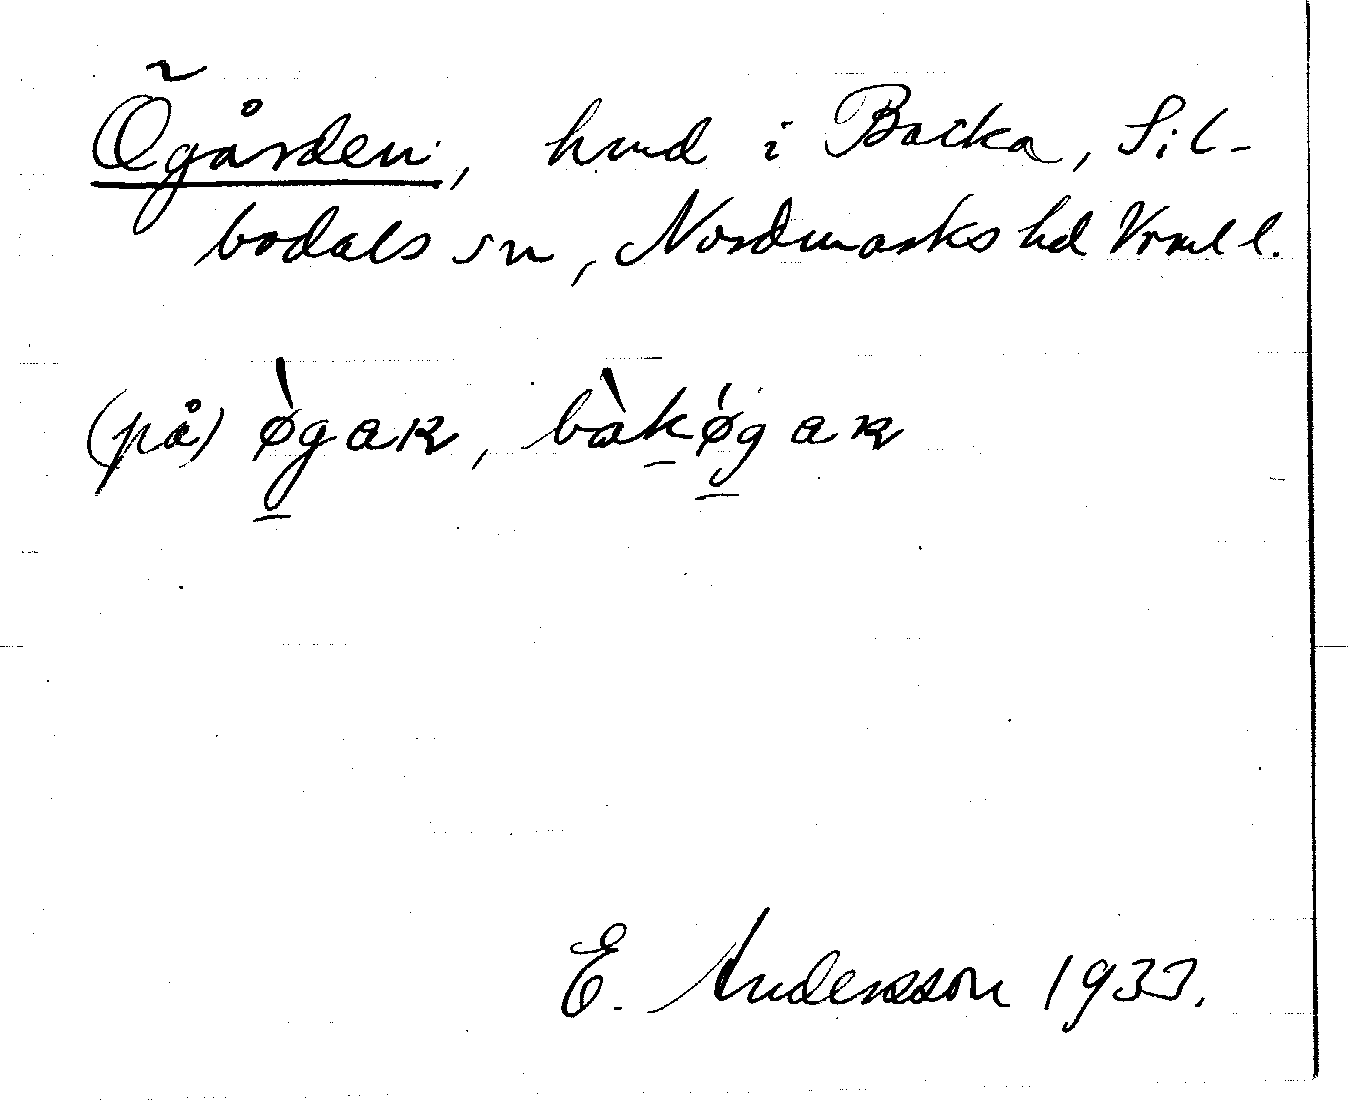 Ögården, hmd i Backa, Sil-
bodals sn, Nordmarks hd Vrml l.
(på) ø̀gaʀ, bàkǿgaʀ
E. Andersson 1933.